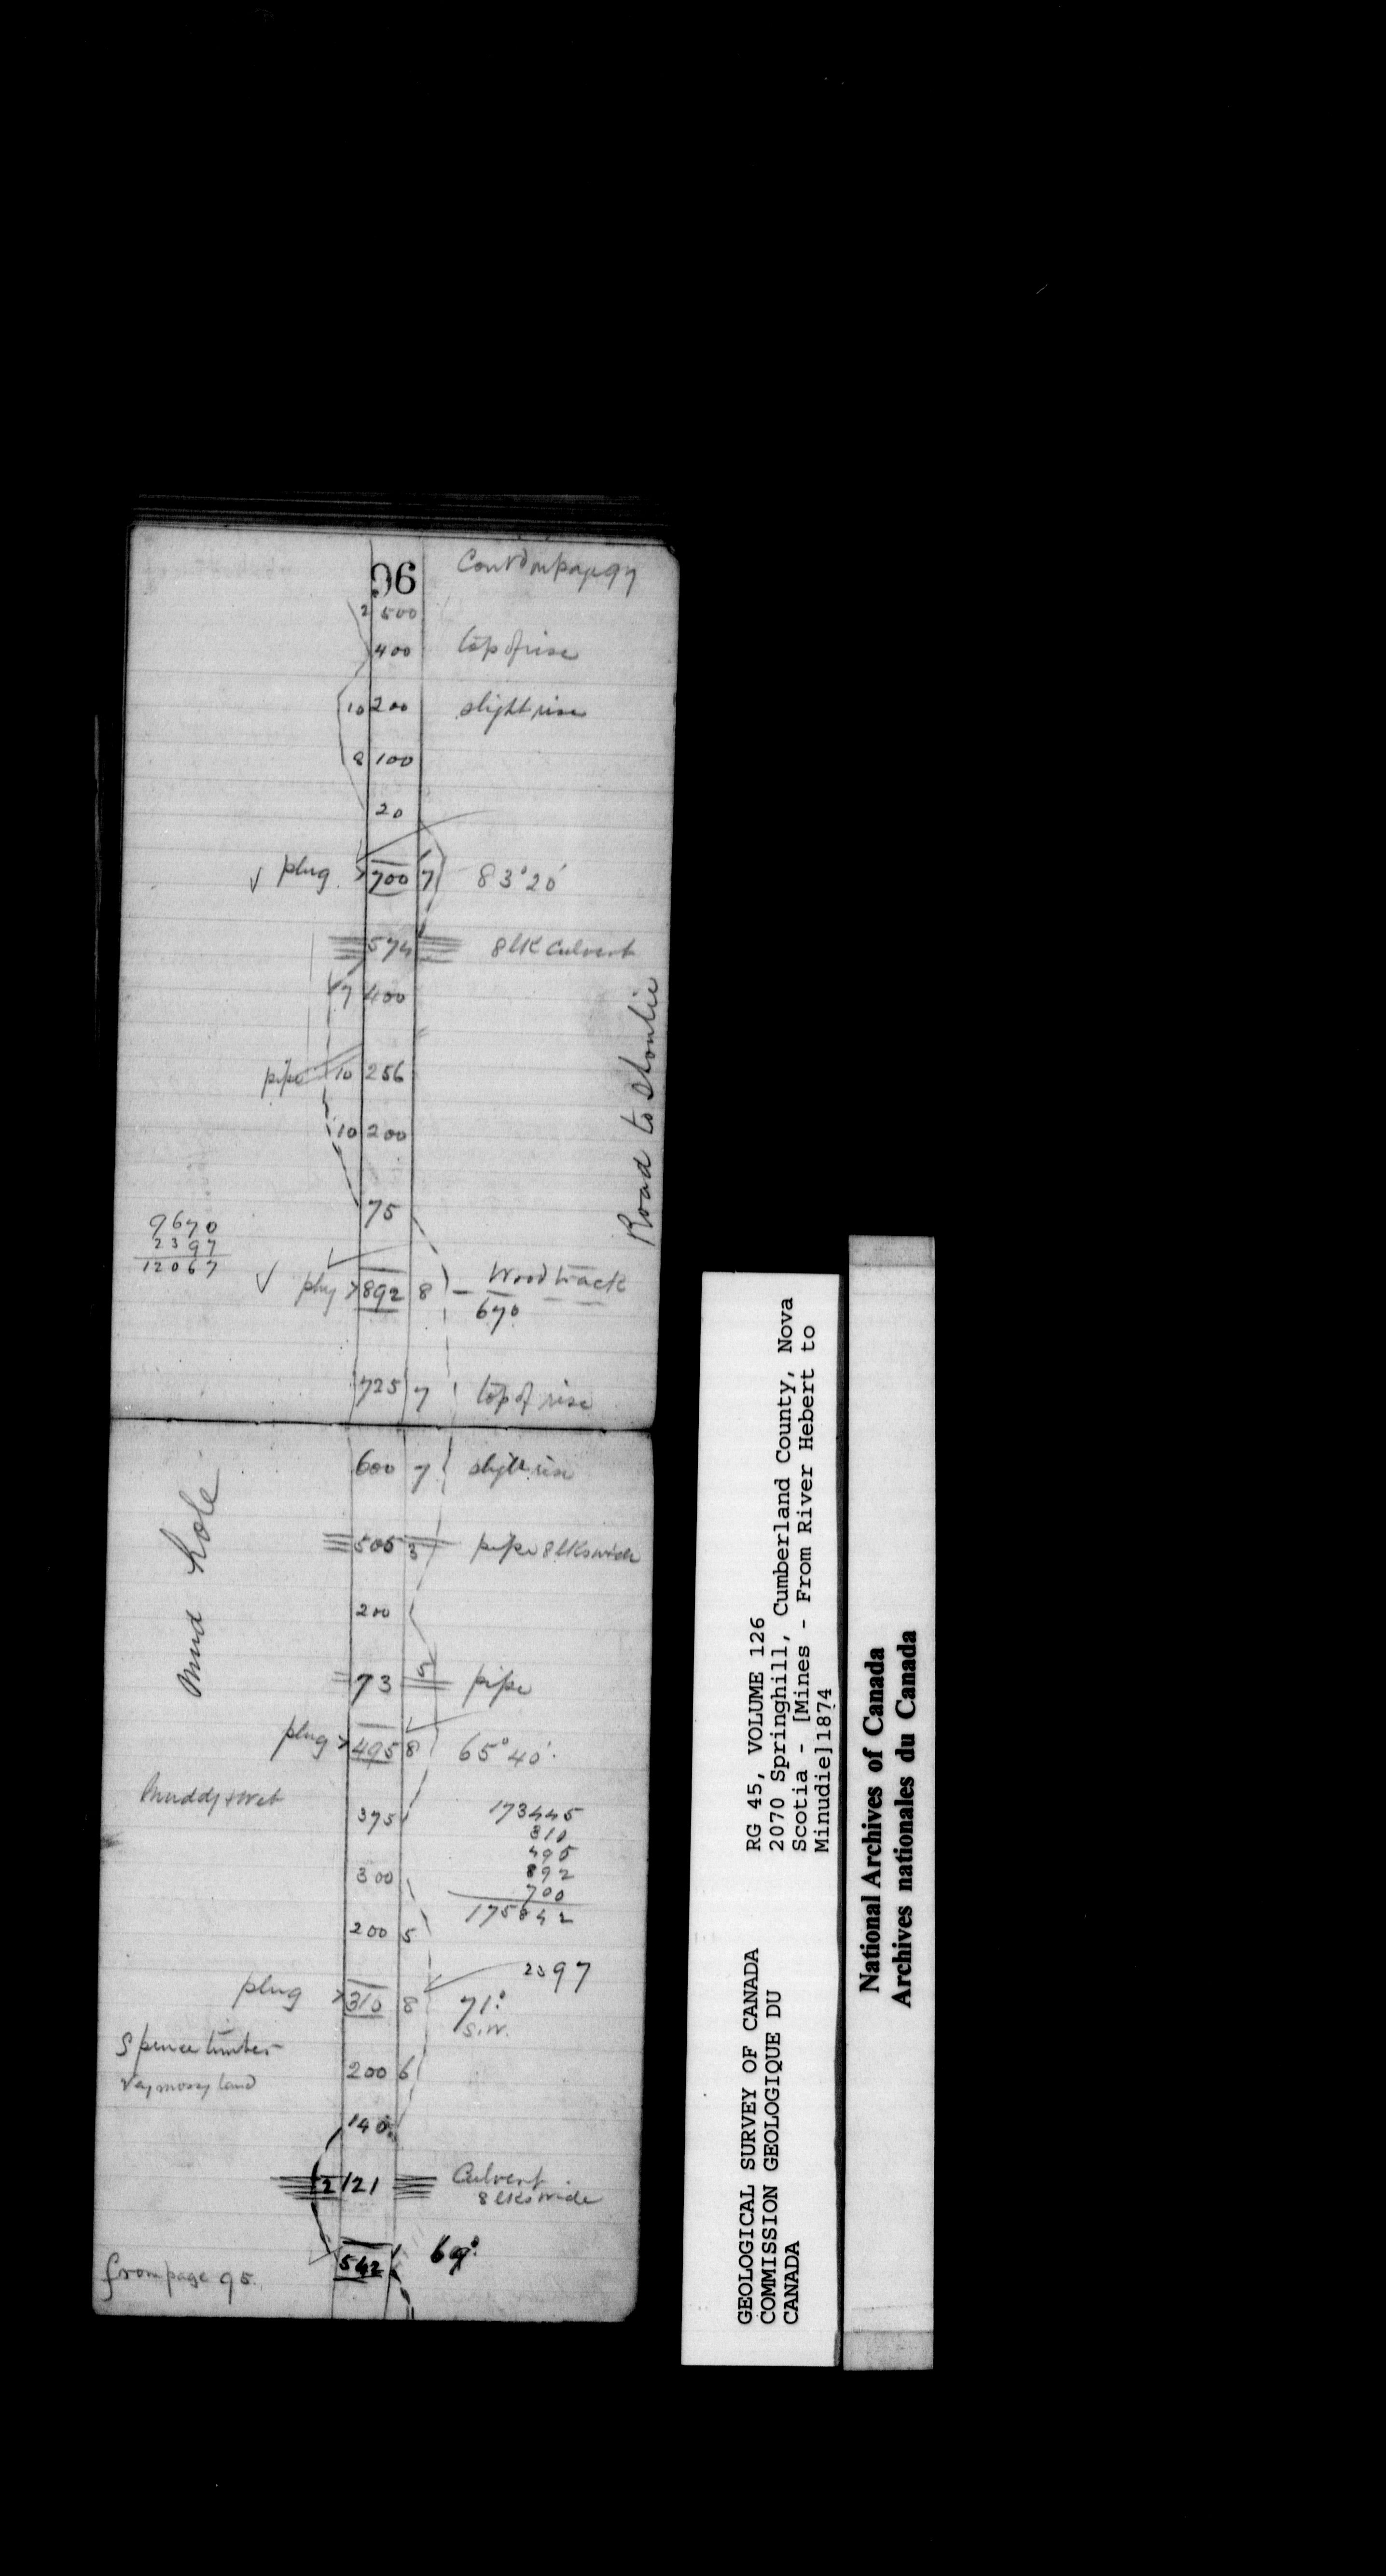 96 Cont'd on page 97
2 500
400 top of rise
10 200 slight rise
8 100
20
✓ plug > 700 7 83°20'
574 8 lK Culvert
7 400
pipe 10 256
10 200
75
Road to Shoulie
9670
2397
12067
✓ plug > 892 8 Wood track
670
725 7 top of rise
600 7 slight rise
Mud hole
505 3 pipe 8 lks wide
200
73 5 pipe
plug > 495 8 65°40'
Muddy & wet
375
173445
310
495
892
700
175842
300
200 5
2397
plug > 310 8 71°
S.W.
Spruce timber
Very mossy land
200 6
140
12 121 Culvert
8 lks wide
542 69°
from page 95.
RG 45, VOLUME 126
2070 Springhill, Cumberland County, Nova
Scotia - [Mines - From River Hebert to
Minudie]1874
GEOLOGICAL SURVEY OF CANADA
COMMISSION GEOLOGIQUE DU
CANADA
National Archives of Canada
Archives nationales du Canada